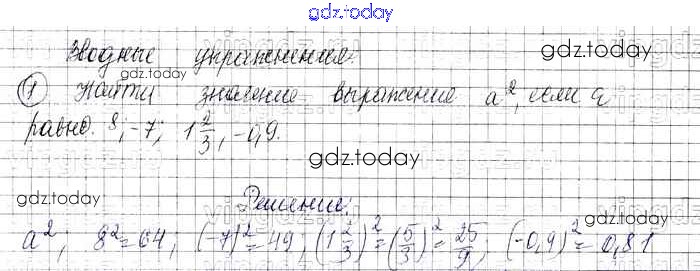 gdz.today
Вводные упражнения. gdz.today
gdz.today
① Найти значение выражения a², если a
равно. 8; -7; 1 2/3, -0,9.
gdz.today
gdz.today
Решение:
gdz.today
a²; 8²=64; (-7)²=49, (1 2/3)²=(5/3)²=25/9; (-0,9)²=0,81